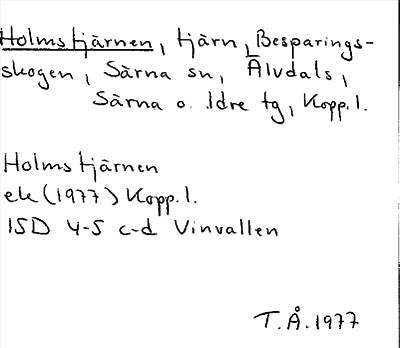 Holmstjärnen, tjärn, Besparings-
skogen, Särna sn, Älvdals,
Särna o. Idre tg, Kopp. l.
Holmstjärnen
ek (1977) Kopp. l.
15D 4-5 c-d Vinvallen
T.Å. 1977